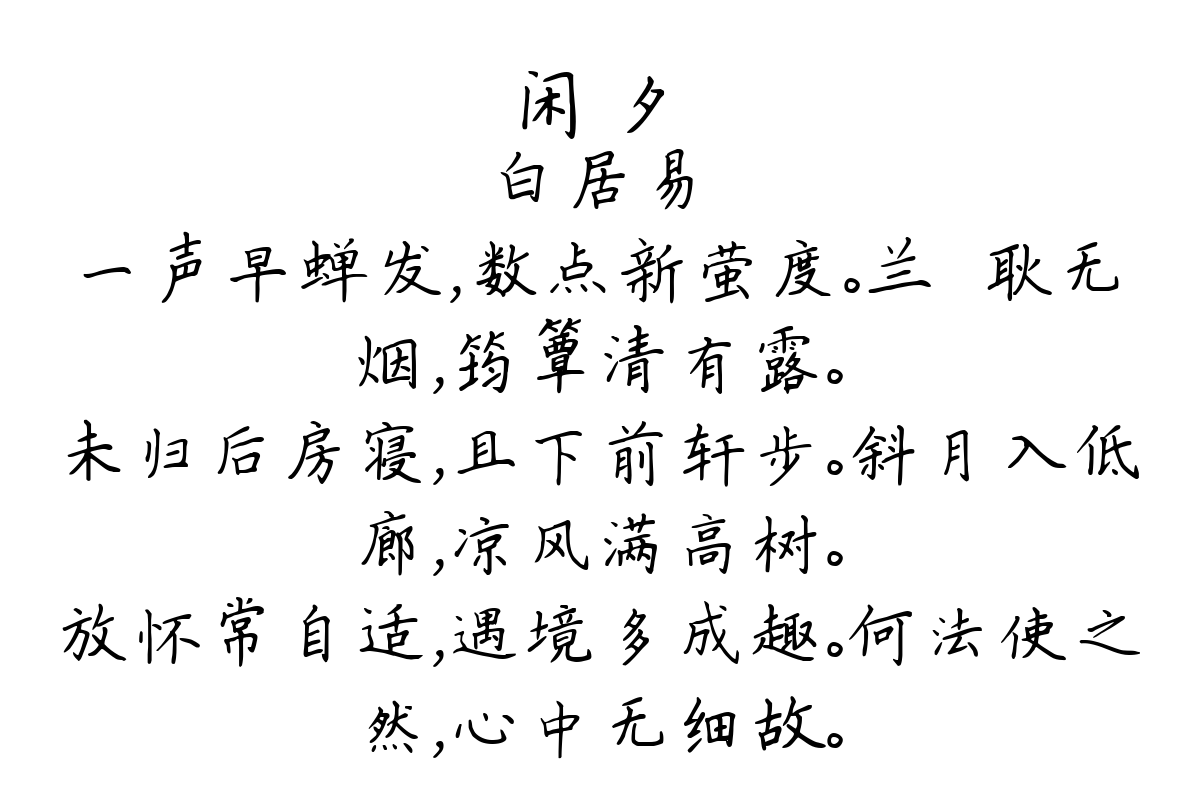 闲夕
白居易
一声早蝉发,数点新萤度。兰 耿无
烟,筠簟清有露。
未归后房寝,且下前轩步。斜月入低
廊,凉风满高树。
放怀常自适,遇境多成趣。何法使之
然,心中无细故。